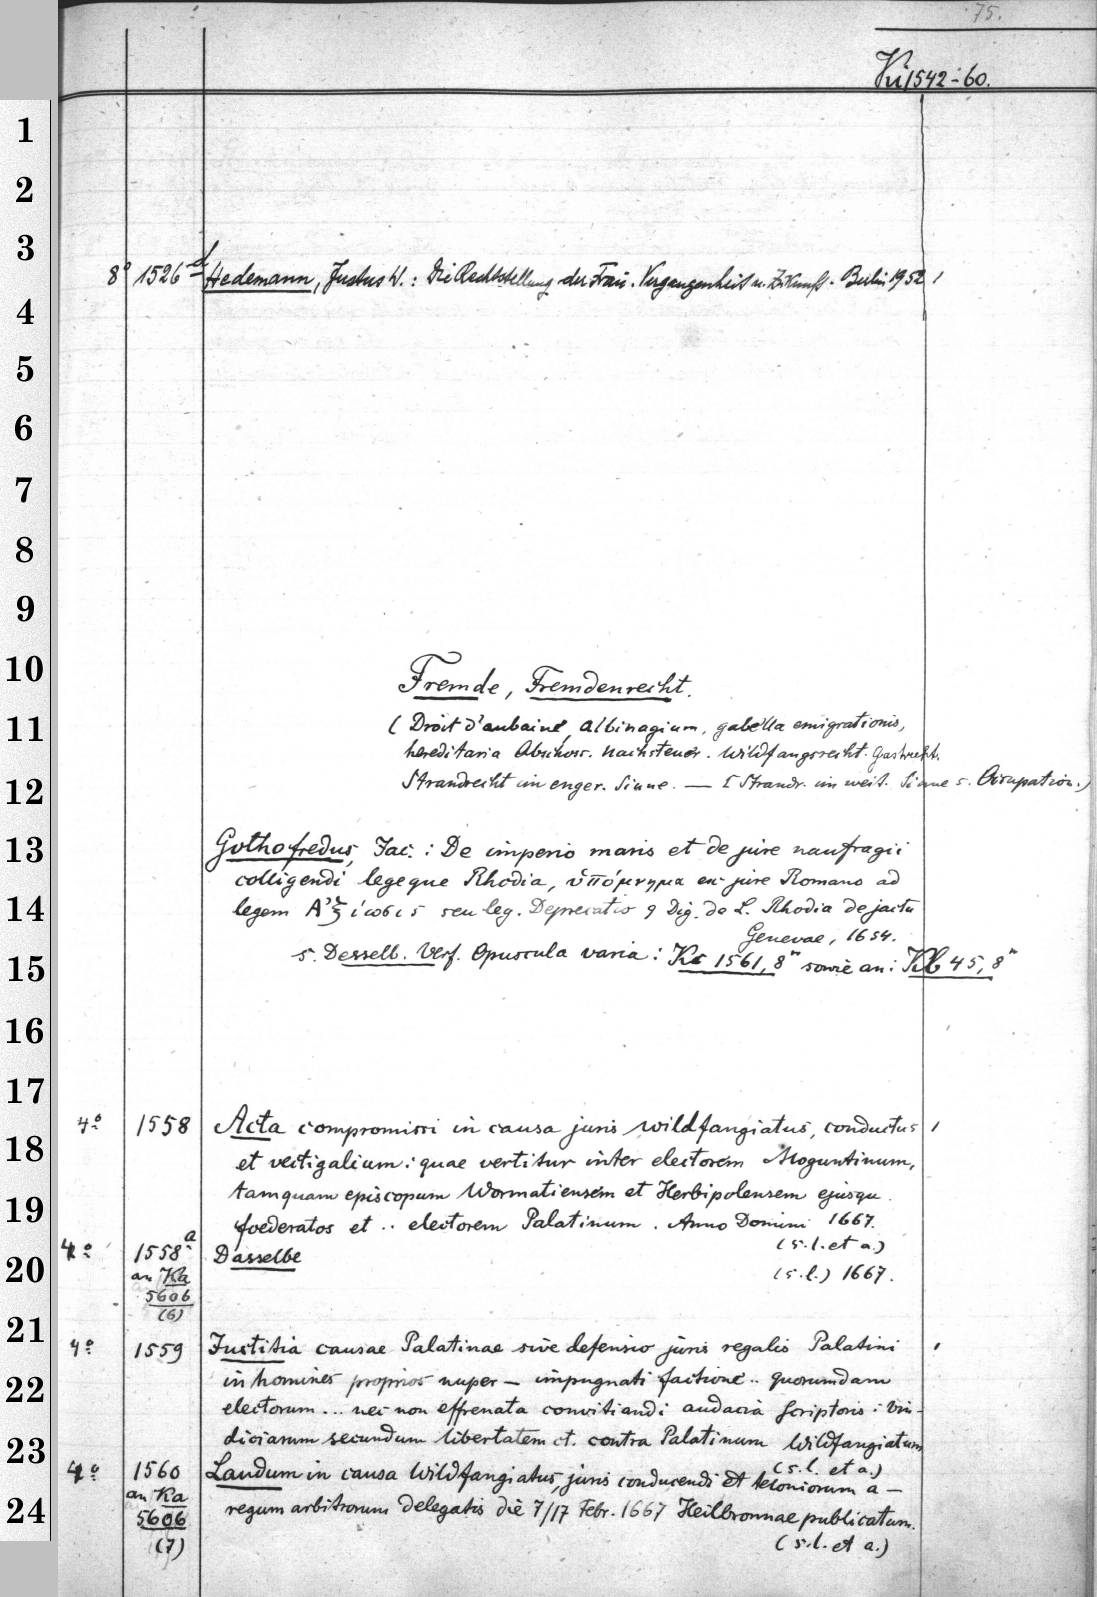 75.
Kü 1542-60.
1
2
3
8° 1526 d Hedemann, Justus W.: Die Rechtsstellung der Frau. Vergangenheit u. Zukunft. Berlin 1952 1
4
5
6
7
8
9
10
Fremde, Fremdenrecht.
11
( Droit d'aubaine, Albinagium, gabella emigrationis,
hereditaria Abschoss. Nachsteuer. Wildfangsrecht. Gastrecht.
12
Strandrecht im enger. Sinne. — [ Strandr. im weit. Sinne s. Occupation.)
13
Gothofredus, Jac.: De imperio maris et de jure naufragii
colligendi legeque Rhodia, ὑπόμνημα ex jure Romano ad
14
legem seu leg. Deprecatio 9 Dig. de L. Rhodia de jactu
Genevae, 1654.
15
s. Desselb. Verf. Opuscula varia: Kc 1561, 8" sowie an: Kb 45, 8"
16
17
4° 1558 Acta compromissi in causa juris wildfangiatus, conductus 1
18
et vectigalium: quae vertitur inter electorem Moguntinum,
tamquam episcopum Wormatiensem et Herbipolensem ejusqu.
19
foederatos et .. electorem Palatinum. Anno Domini 1667.
(s.l. et a.)
4° 1558 a Dasselbe
20
an Ka (s.l.) 1667.
5606
(6)
21
4° 1559 Justitia causae Palatinae sive defensio juris regalis Palatini 1
22
in homines proprios nuper — impugnati factione .. quorumdam
electorum ... nec non effrenata convitiandi audacia scriptoris: vin-
diciarum secundum libertatem ct. contra Palatinum Wildfangiatum
23
(s.l. et a.)
4° 1560 Laudum in causa Wildfangiatus, juris conducendi et teloniorum a —
an Ka
24
5606 regum arbitrorum delegatis die 7/17 Febr. 1667 Heilbronnae publicatum.
(7) (s.l. et a.)